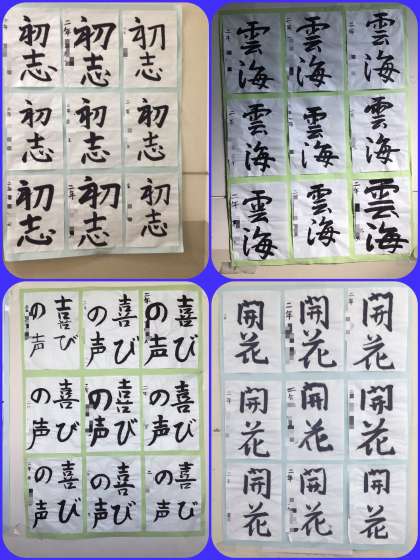 初志
初志
二年
初志
初志
初志
初志
初志
初志
二年
初志
雲海
二年
雲海
雲海
雲海
雲海
雲海
雲海
雲海
雲海
喜び
の声
喜び
の声
喜び
の声
二年
喜び
の声
喜び
の声
喜び
の声
喜び
の声
喜び
の声
喜び
の声
開花
開花
二年
開花
二年
開花
開花
開花
開花
二年
開花
二年
開花